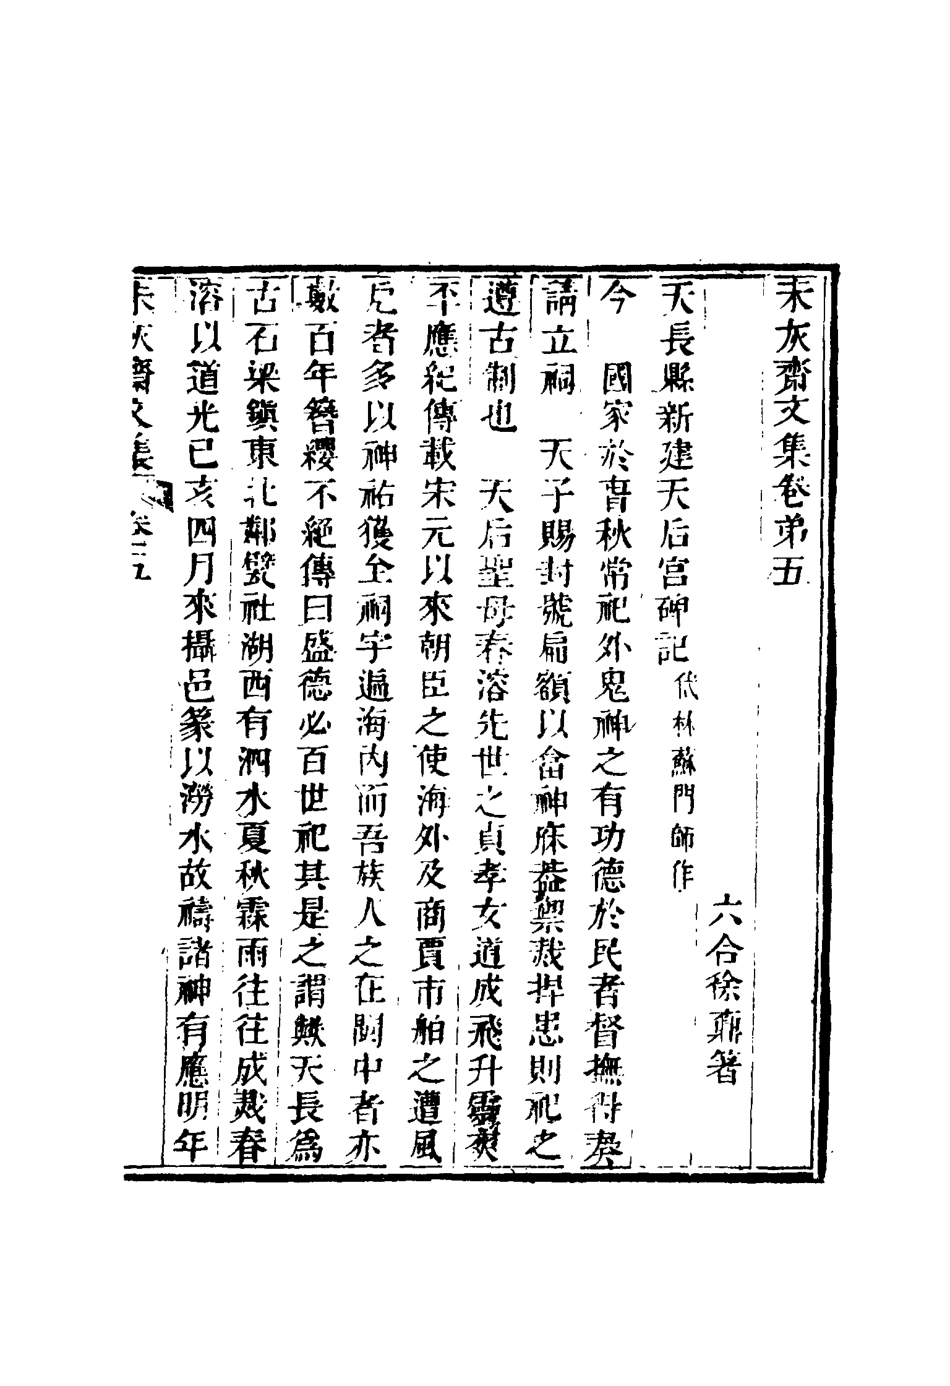 未灰齋文集卷弟五
六合徐鼒著
天長縣新建天后宮碑記代林蘇門師作
今　國家於春秋常祀外鬼神之有功德於民者督撫得奏
請立祠　天子賜封號扁額以畣神庥葢禦烖捍患則祀之
遵古制也　天后聖母春溶先世之貞孝女道成飛升靈爽
丕應紀傳載宋元以來朝臣之使海外及商賈市舶之遭風
危者多以神祐獲全祠宇遍海內而吾族人之在閩中者亦
數百年簪纓不絕傳曰盛德必百世祀其是之謂歟天長爲
古石梁鎮東北鄰甓社湖西有泗水夏秋霖雨往往成烖春
溶以道光己亥四月來攝邑篆以澇水故禱諸神有應明年
未灰齋文集　卷五